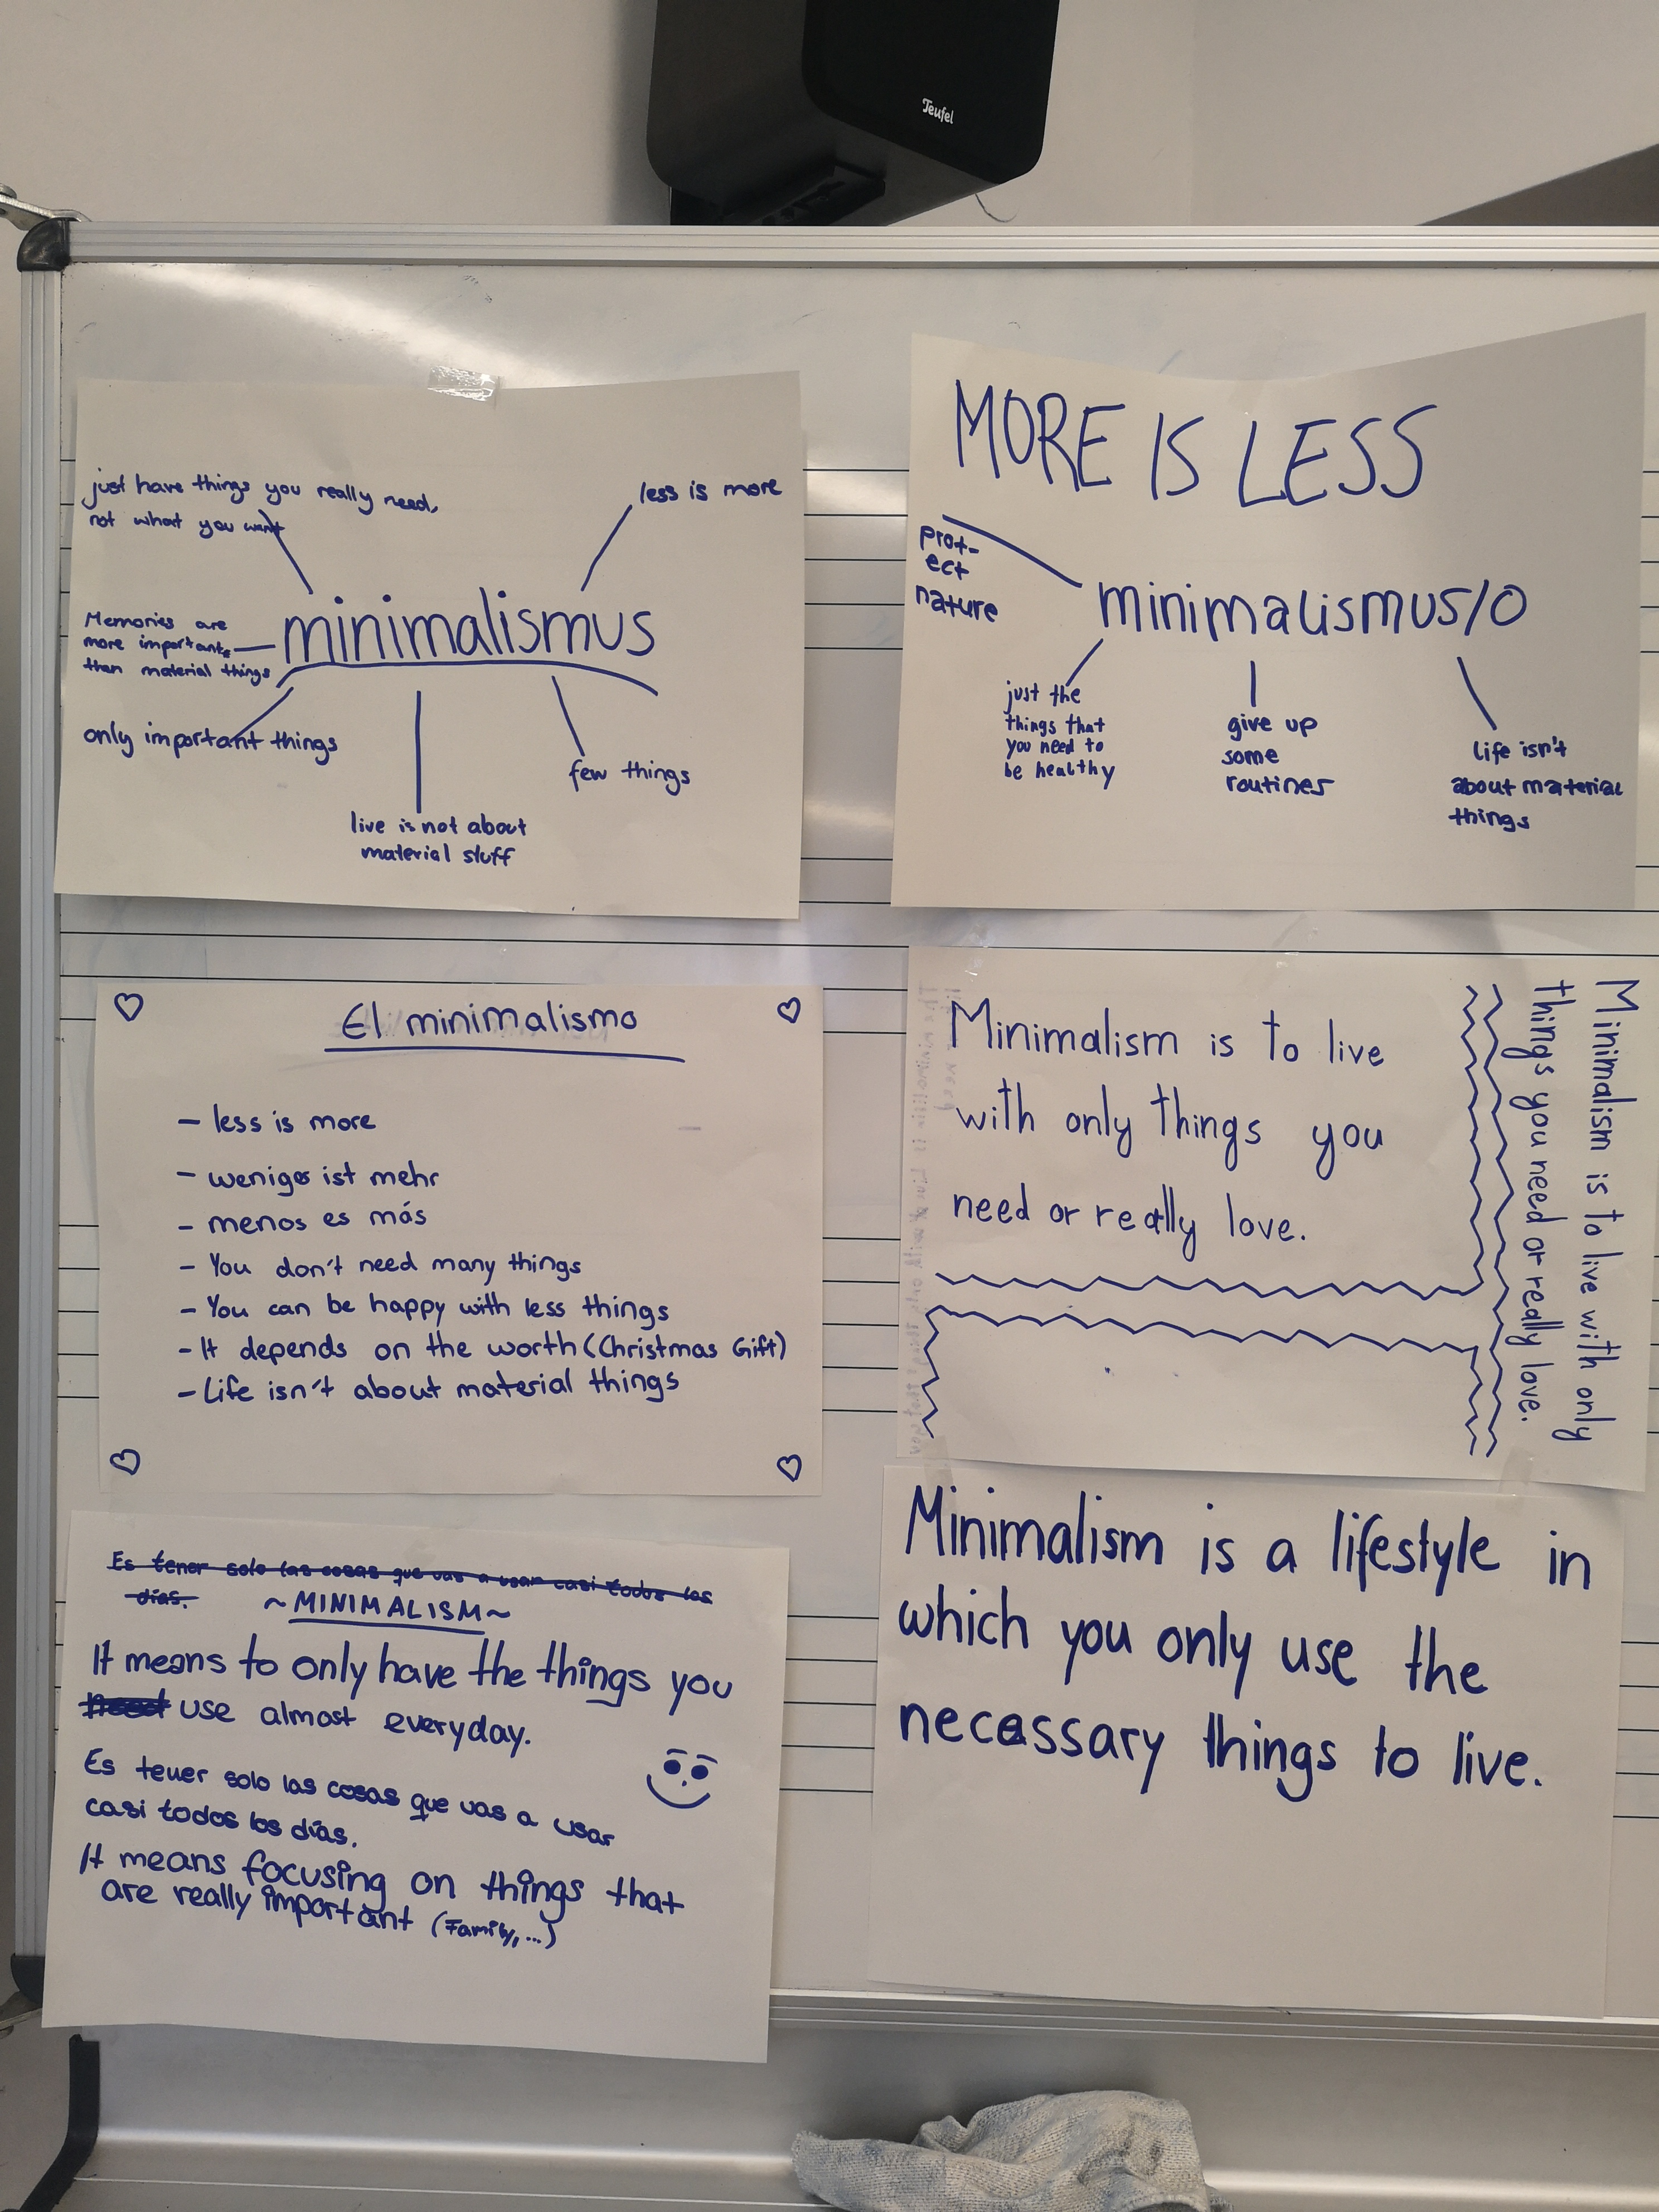 Teufel
just have things you really need,
not what you want
less is more
minimalismus
Memories are
more important
than material things
only important things
few things
live is not about
material stuff
MORE IS LESS
prot-
ect
nature
minimalismus/o
just the
things that
you need to
be healthy
give up
some
routines
life isn't
about material
things
El minimalismo
- less is more
- weniger ist mehr
- menos es más
- You don't need many things
- You can be happy with less things
- It depends on the worth (Christmas Gift)
- Life isn't about material things
Minimalism is to live
with only things you
need or really love.
Minimalism is to live with only
things you need or really love.
Es tener solo las cosas que vas a usar casi todos los
días.
~MINIMALISM~
It means to only have the things you
need use almost everyday.
Es tener solo las cosas que vas a usar
casi todos los días.
It means focusing on things that
are really important (Family,...)
Minimalism is a lifestyle in
which you only use the
necessary things to live.